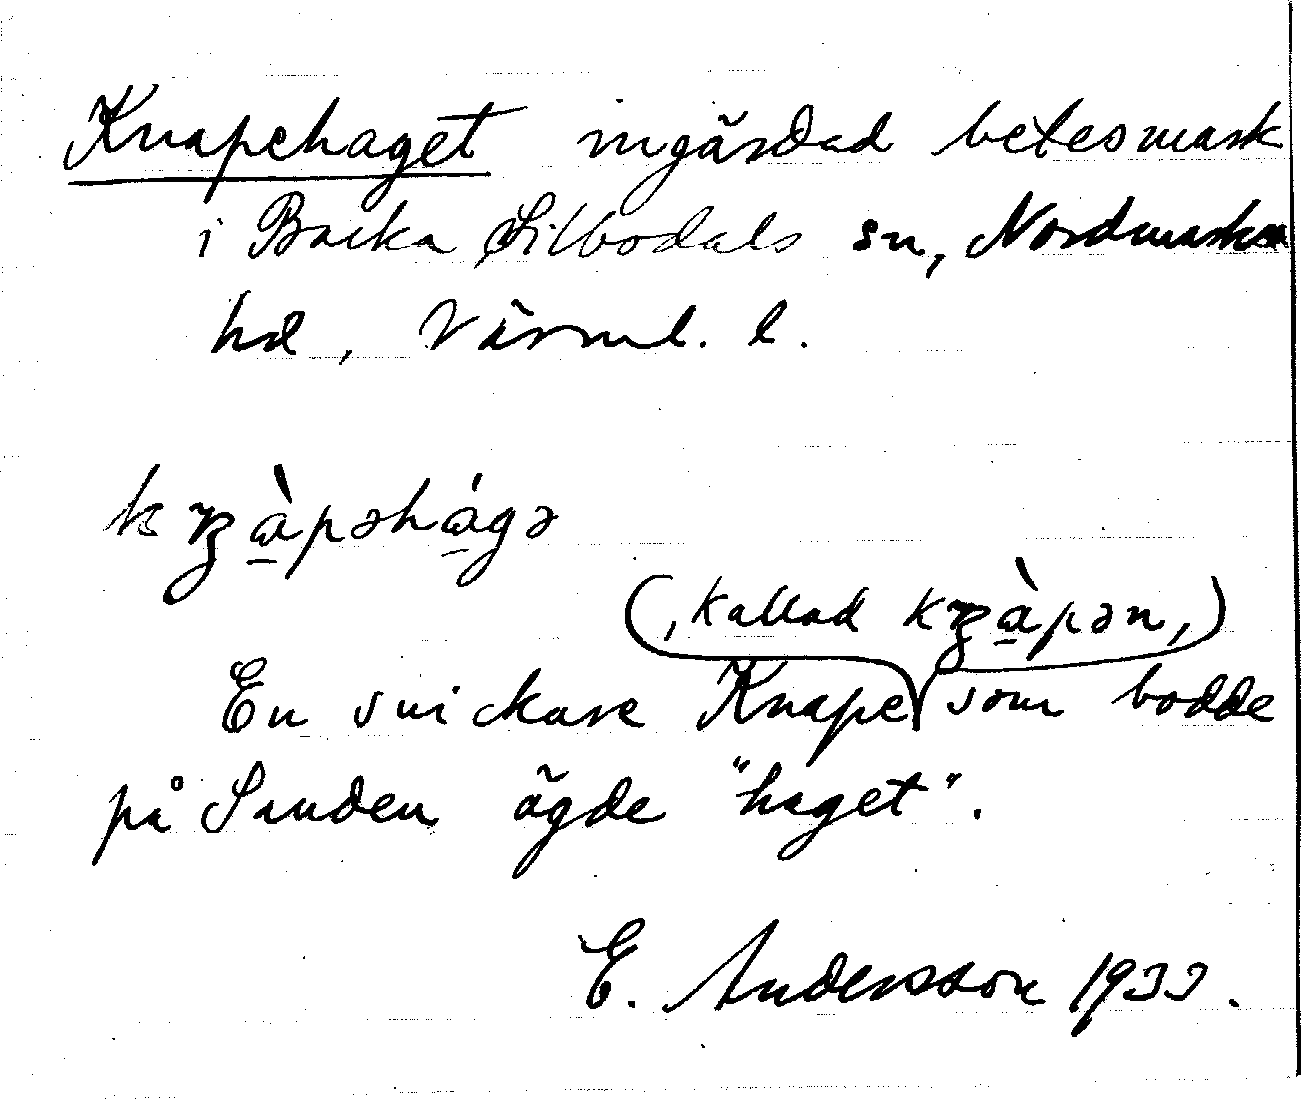 Knapehaget ingärdad betesmark
i Backa Silbodals sn, Nordmarks
hd, Värml. l.
kn̥à̱pəhá̱gə
(, kallad kn̥à̱pən,)
En snickare Knape som bodde
på Sanden ägde "haget".
E. Andersson 1933.